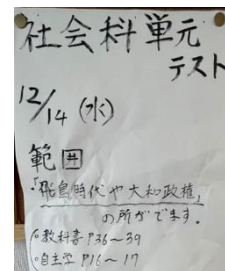 社会科単元
テスト
12/14(水)
範囲
・「飛鳥時代や大和政権」
の所がでます。
○教科書P36～39
○自主学P16～17